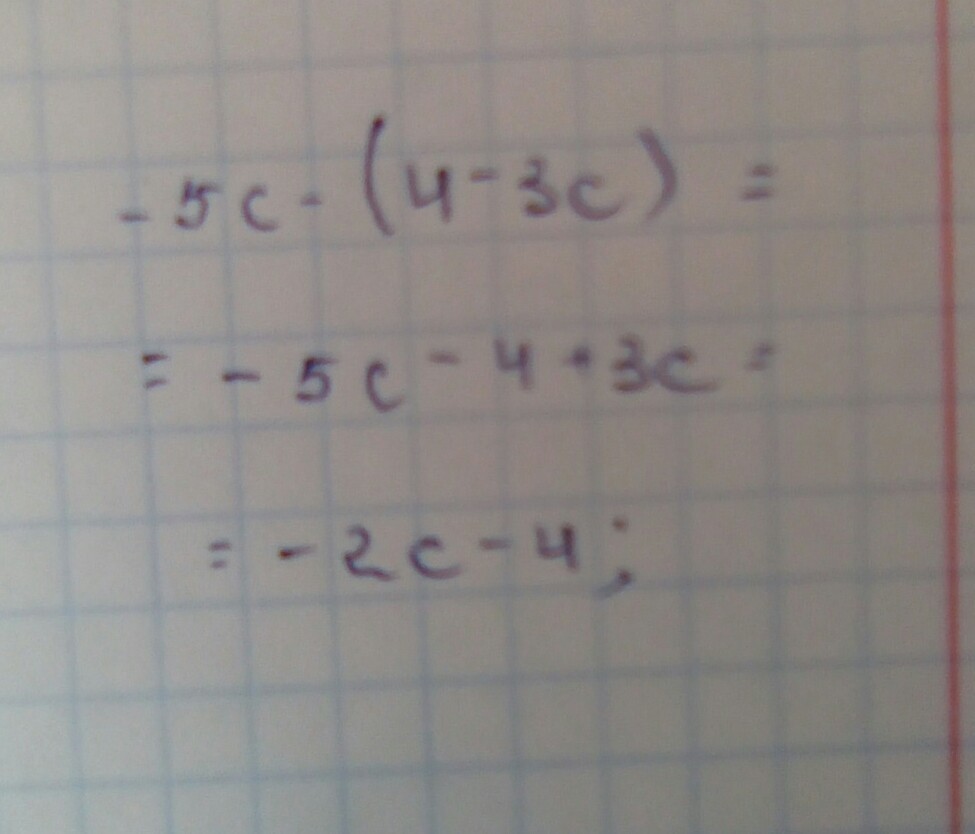 - 5c - (4 - 3c) =
= - 5c - 4 + 3c =
= - 2c - 4 ;